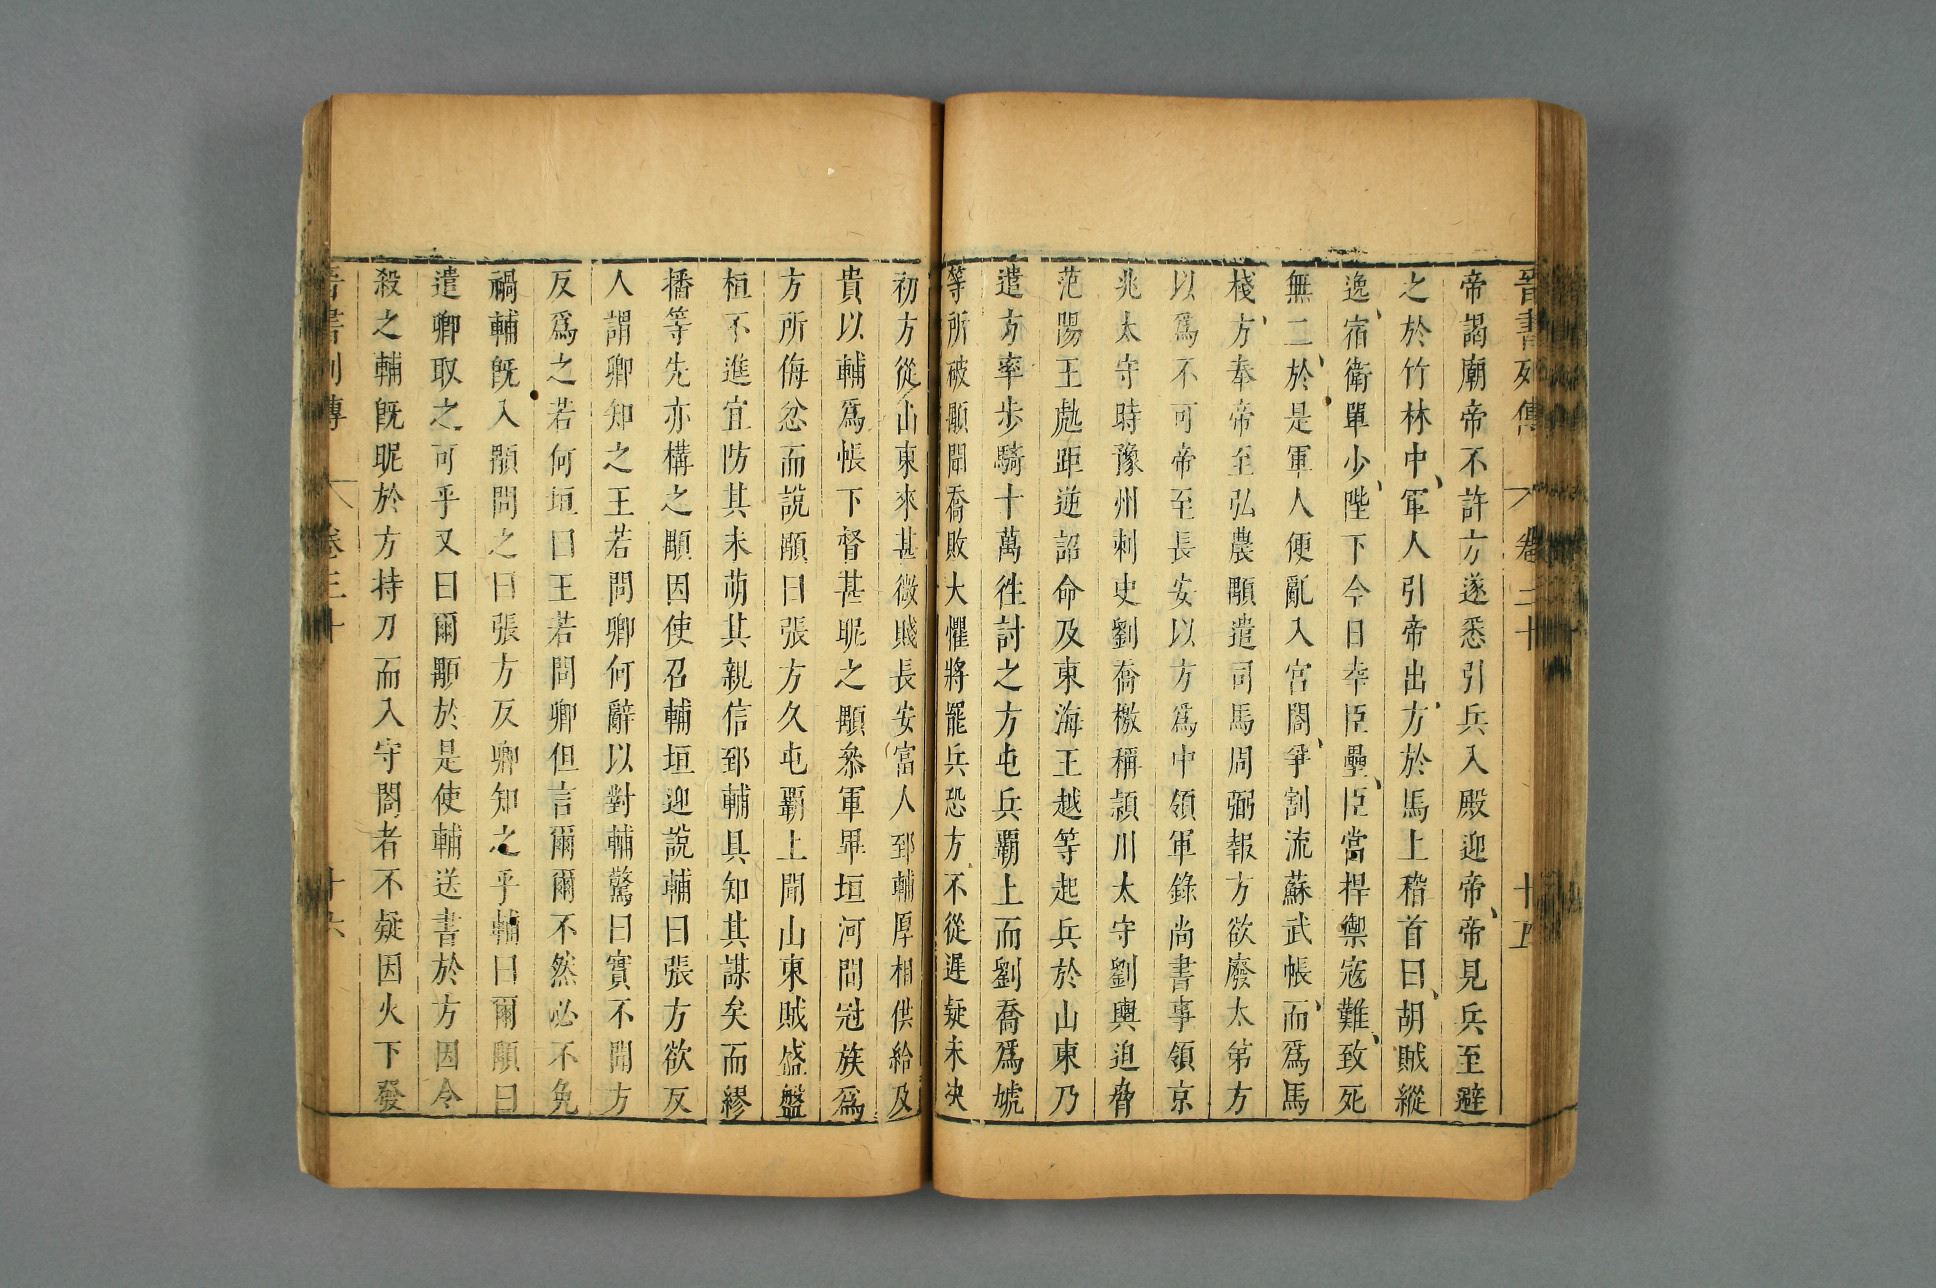 晉書列傳 卷三十 十五
帝謁廟帝不許方遂悉引兵入殿迎帝帝見兵至避
之於竹林中軍人引帝出方於馬上稽首曰胡賊縱
逸宿衛單少陛下今日幸臣壘臣當捍禦寇難致死
無二於是軍人便亂入宮閤爭割流蘇武帳而爲馬
棧方奉帝至弘農顒遣司馬周弼報方欲廢太弟方
以爲不可帝至長安以方爲中領軍錄尚書事領京
兆太守時豫州刺史劉喬檄稱潁川太守劉輿迫脅
范陽王虓距逆詔命及東海王越等起兵於山東乃
遣方率步騎十萬往討之方屯兵覇上而劉喬爲虓
等所破顒聞喬敗大懼將罷兵恐方不從遲疑未决
初方從山東來甚微賤長安富人郅輔厚相供給及
貴以輔爲帳下督甚昵之顒叅軍畢垣河間冠族爲
方所侮忿而說顒曰張方久屯覇上聞山東賊盛盤
桓不進宜防其未萌其親信郅輔具知其謀矣而繆
播等先亦構之顒因使召輔垣迎說輔曰張方欲反
人謂卿知之王若問卿何辭以對輔驚曰實不聞方
反爲之若何垣曰王若問卿但言爾爾不然必不免
禍輔旣入顒問之曰張方反卿知之乎輔曰爾顒曰
遣卿取之可乎又曰爾顒於是使輔送書於方因令
殺之輔旣昵於方持刀而入守閤者不疑因火下發
晉書列傳 卷三十 十六